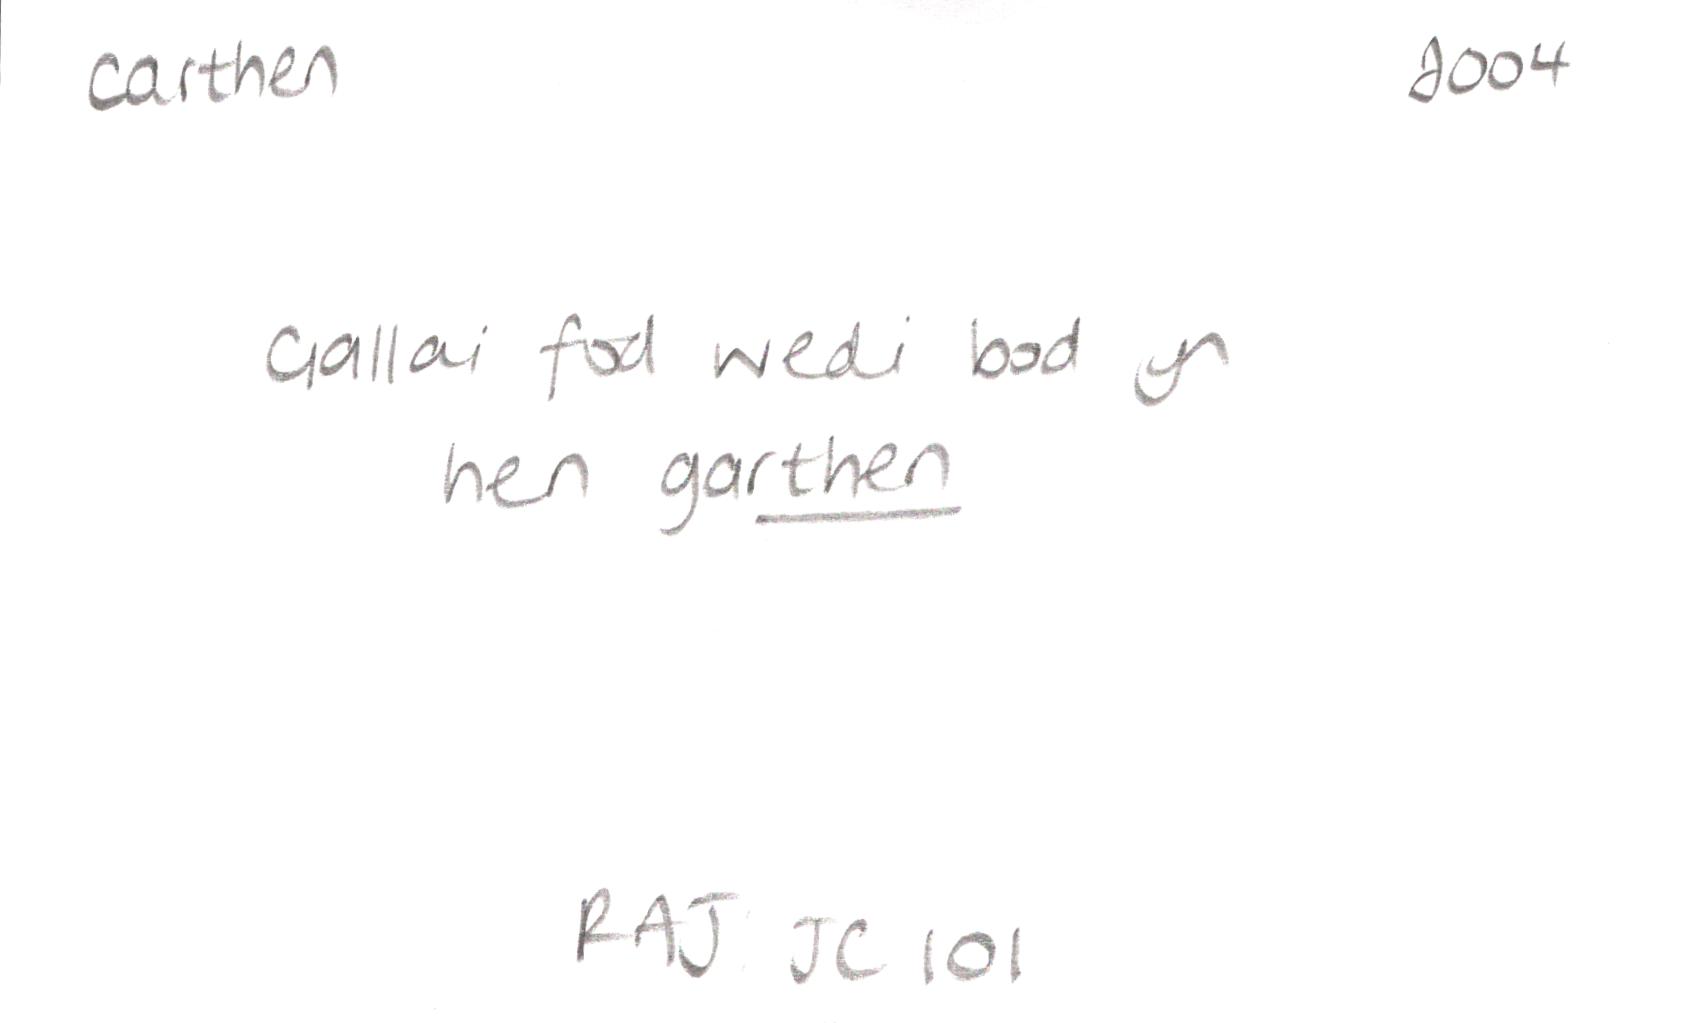 carthen 2004
Gallai fod wedi bod yn
hen garthen
RAJ: JC 101